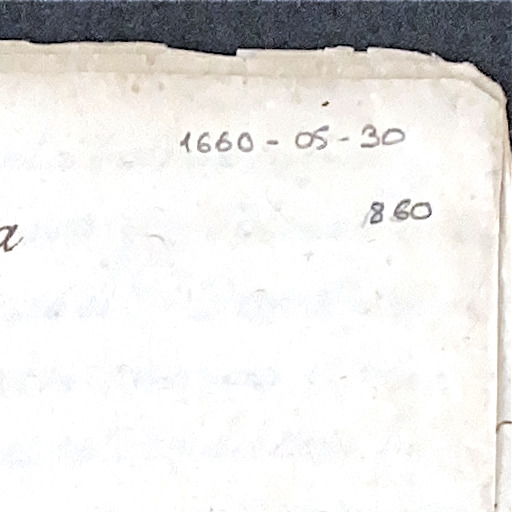 1660 - 05 - 30
860
a